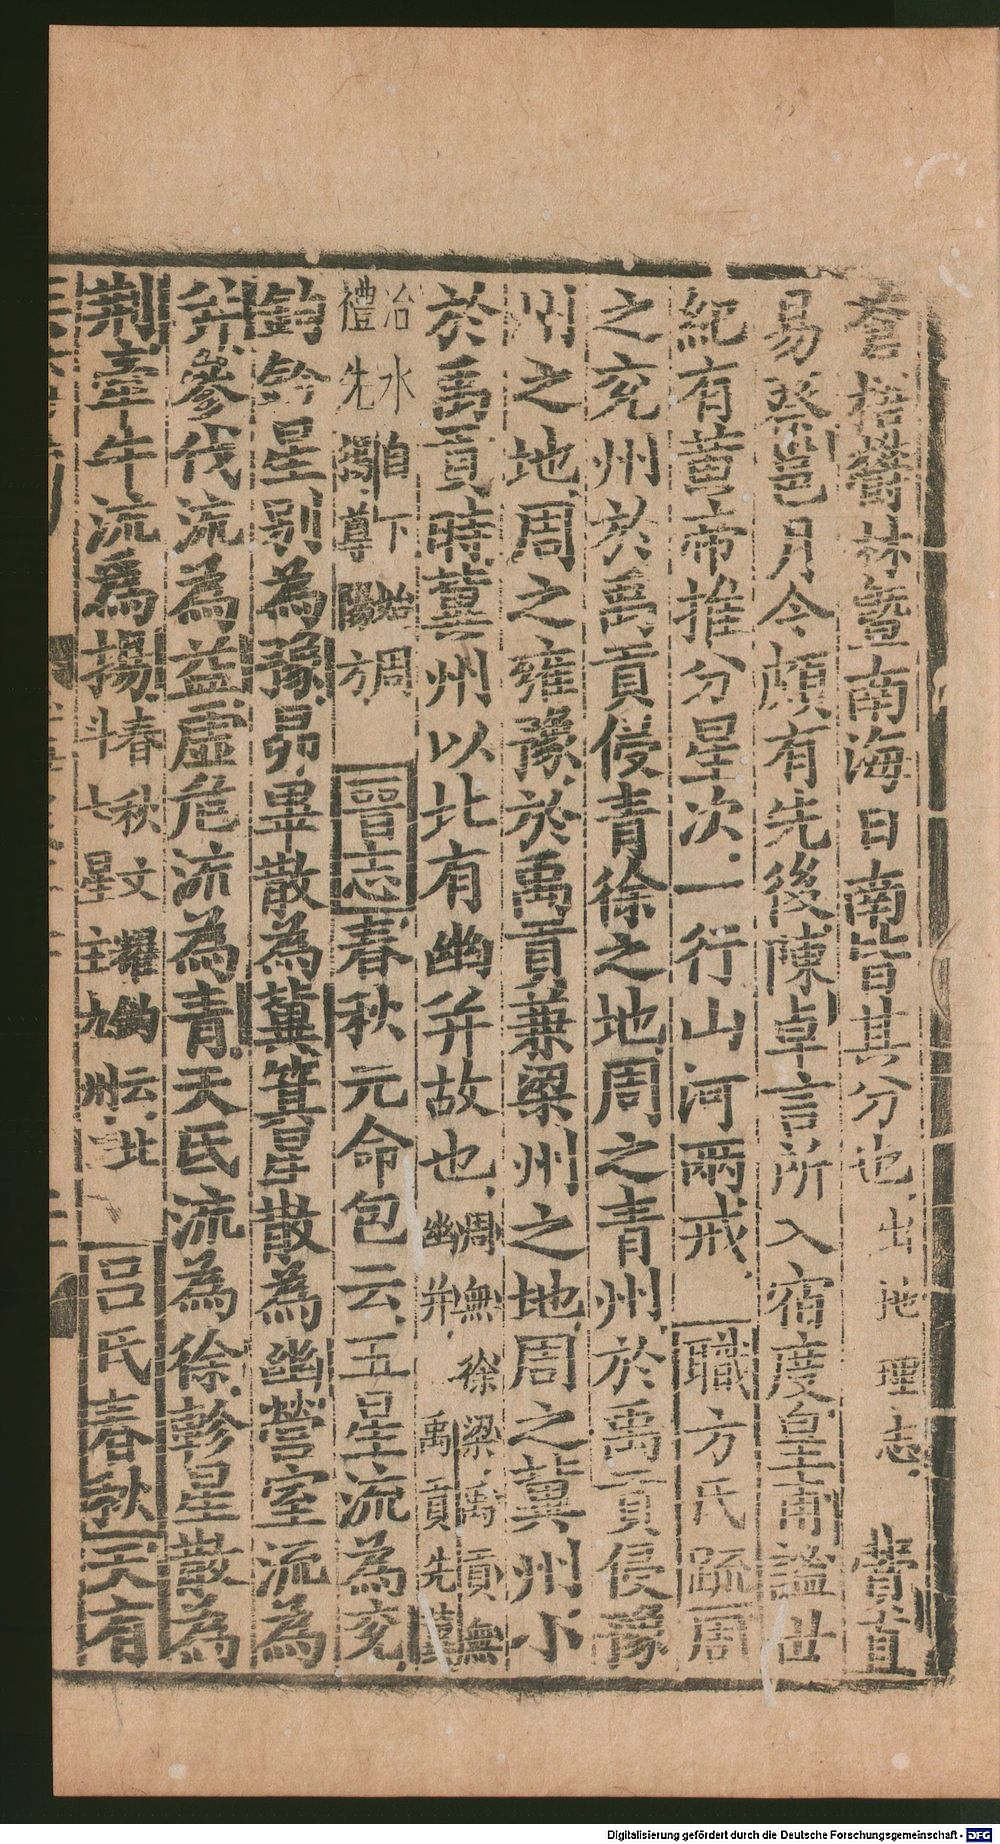 蒼梧鬱林暨南海日南皆其分也出地理志費直
易蔡邕月令頗有先後陳卓言所入宿度皇甫謐世
紀有黃帝推分星次一行山河兩戒職方氏疏周
之兖州於禹貢侵青徐之地周之青州於禹貢侵豫
州之地周之雍豫於禹貢兼梁州之地周之冀州小
於禹貢時冀州以北有幽并故也周無徐梁禹貢無幽并禹貢先冀
治水自下始周禮先獨尊陽方晉志春秋元命包云五星流為兖
鈎鈐星別為豫昴畢散為冀箕星散為幽營室流為
并參伐流為益虛危流為青天氐流為徐軫星散為
荆牽牛流為揚春秋文耀鈎云北斗七星主九州呂氏春秋天有
Digitalisierung gefördert durch die Deutsche Forschungsgemeinschaft - DFG